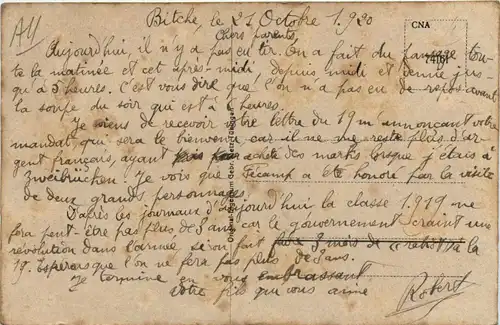 All
Bitche, le 21 Octobre 1.920
CNA
74161
Chers parents,
Aujourd'hui, il n'y a pas eu tir. On a fait du pansage tou-
te la matinée et cet après-midi, depuis midi et demie jus-
qu'à 5 heures. C'est vous dire que l'on n'a pas eu de repos avant
la soupe du soir qui est à heures.
Je viens de recevoir votre lettre du 19 m'annonçant votre
mandat, qui sera le bienvenu car il ne me reste plus d'ar-
gent français, ayant acheté des marks lorsque j'étais à
Zweibrücken. Je vois que Fécamp a été honoré par la visite
de deux grands personnages.
D'après les journaux d'aujourd'hui la classe 1.919 ne
fera peut-être pas plus de 3 ans car le gouvernement craint une
révolution dans l'armée si on fait faire 3 mois de à la
19. Espérons que l'on ne fera pas plus de 3 ans.
Je termine en vous embrassant
Votre fils qui vous aime
Robert